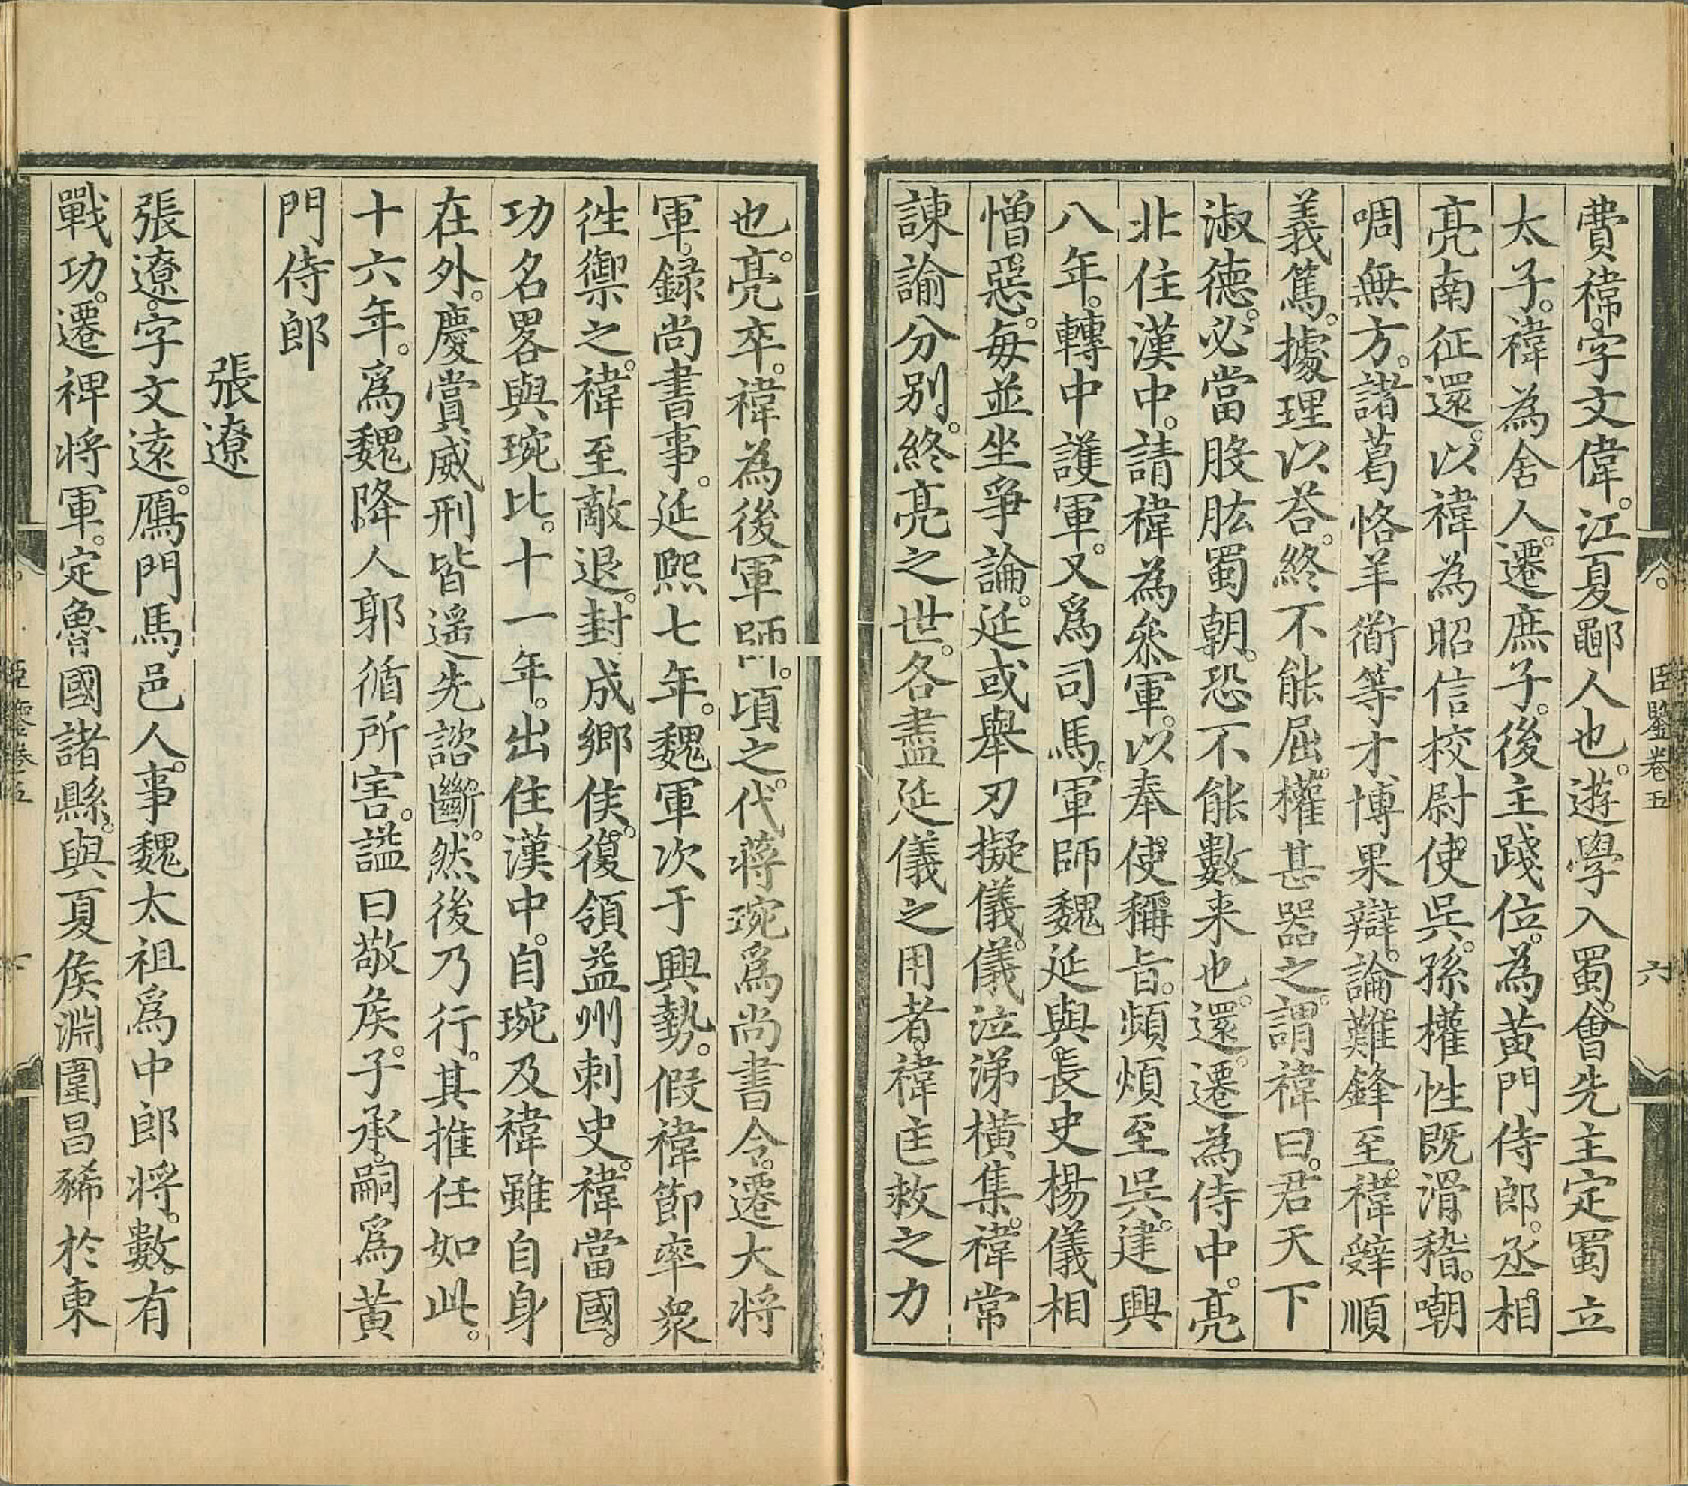 費禕。字文偉。江夏鄳人也。遊學入蜀。會先主定蜀立
太子。禕為舍人。遷庶子。後主踐位。為黃門侍郎。丞相
亮南征還。以禕為昭信校尉使吳。孫權性既滑稽。嘲
啁無方。諸葛恪羊衜等才博果辯。論難鋒至。禕辭順
義篤。據理以荅。終不能屈。權甚器之。謂禕曰。君天下
淑德。必當股肱蜀朝。恐不能數来也。還。遷為侍中。亮
北住漢中。請禕為叅軍。以奉使稱旨。頻煩至吳。建興
八年。轉中護軍。又爲司馬。軍師魏延與長史楊儀相
憎惡。每並坐爭論。延或舉刃擬儀。儀泣涕橫集。禕常
諫諭分别。終亮之世。各盡延儀之用者。禕匡救之力
也。亮卒。禕為後軍師。頃之。代蔣琬爲尚書令。遷大将
軍。録尚書事。延熙七年。魏軍次于興勢。假禕節率衆
徃禦之。禕至敵退。封成鄉侯。復領益州刺史。禕當國
功名畧與琬比。十一年。出住漢中。自琬及禕雖自身
在外。慶賞威刑皆遥先諮斷。然後乃行。其推任如此。
十六年。爲魏降人郭循所害。謚曰敬侯。子承嗣爲黃
門侍郎
張遼
張遼。字文遠。鴈門馬邑人。事魏太祖爲中郎将。數有
戰功。遷裨将軍。定魯國諸縣。與夏侯淵圍昌豨於東
臣鑒卷五
六